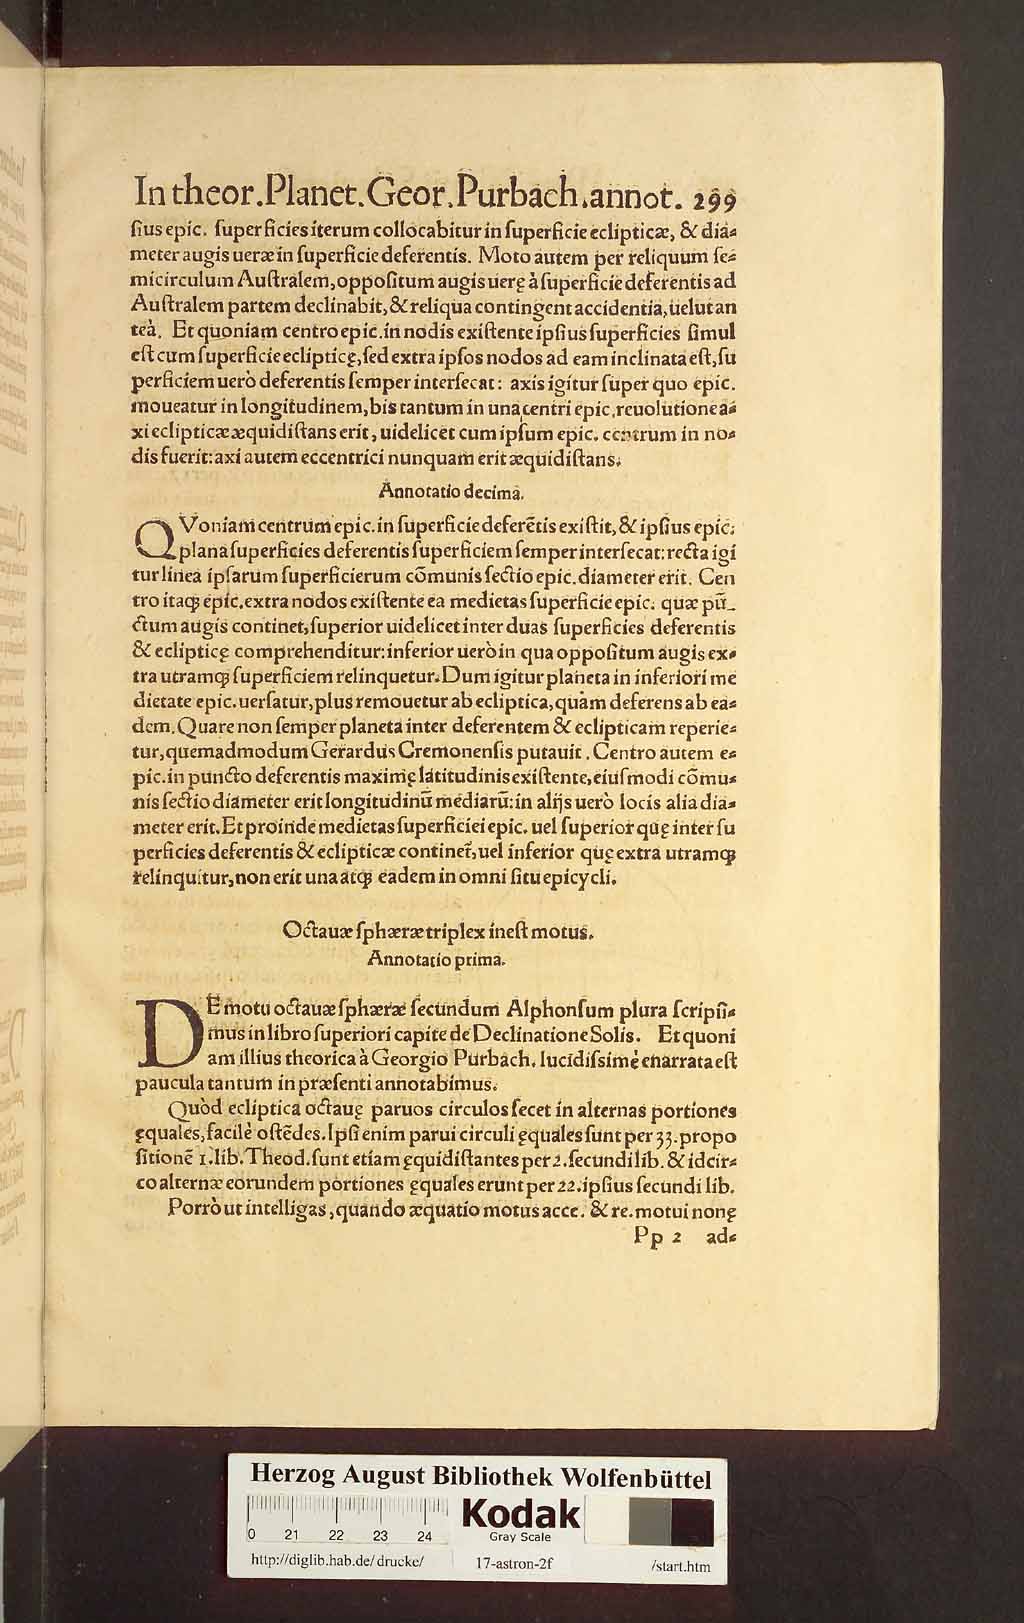 In theor. Planet. Geor. Purbach. annot. 299
ſius epic. ſuperficies iterum collocabitur in ſuperficie eclipticæ, & dia-
meter augis ueræ in ſuperficie deferentis. Moto autem per reliquum ſe-
micirculum Auſtralem, oppoſitum augis uerę à ſuperficie deferentis ad
Auſtralem partem declinabit, & reliqua contingent accidentia, uelut an
teà. Et quoniam centro epic. in nodis exiſtente ipſius ſuperficies ſimul
eſt cum ſuperficie eclipticę, ſed extra ipſos nodos ad eam inclinata eſt, ſu
perficiem uerò deferentis ſemper interſecat: axis igitur ſuper quo epic.
moueatur in longitudinem, bis tantum in una centri epic. reuolutione a-
xi eclipticæ æquidiſtans erit, uidelicet cum ipſum epic. centrum in no-
dis fuerit: axi autem eccentrici nunquam erit æquidiſtans.
Annotatio decima.
QVoniam centrum epic. in ſuperficie deferẽtis exiſtit, & ipſius epic.
plana ſuperficies deferentis ſuperficiem ſemper interſecat: recta igi
tur linea ipſarum ſuperficierum cõmunis ſectio epic. diameter erit. Cen
tro itaq; epic. extra nodos exiſtente ea medietas ſuperficie epic. quæ pũ-
ctum augis continet, ſuperior uidelicet inter duas ſuperficies deferentis
& eclipticę comprehenditur: inferior uerò in qua oppoſitum augis ex-
tra utramq; ſuperficiem relinquetur. Dum igitur planeta in inferiori me
dietate epic. uerſatur, plus remouetur ab ecliptica, quàm deferens ab ea-
dem. Quare non ſemper planeta inter deferentem & eclipticam reperie-
tur, quemadmodum Gerardus Cremonenſis putauit. Centro autem e-
pic. in puncto deferentis maximę latitudinis exiſtente, eiuſmodi cõmu-
nis ſectio diameter erit longitudinũ mediarũ: in alijs uerò locis alia dia-
meter erit. Et proinde medietas ſuperficiei epic. uel ſuperior quę inter ſu
perficies deferentis & eclipticæ continet̃, uel inferior quę extra utramq;
relinquitur, non erit una atq; eadem in omni ſitu epicycli.
Octauæ ſphæræ triplex ineſt motus.
Annotatio prima.
DE motu octauæ ſphæræ ſecundum Alphonſum plura ſcripſi-
mus in libro ſuperiori capite de Declinatione Solis. Et quoni
am illius theorica à Georgio Purbach. lucidiſsimè enarrata eſt
paucula tantum in præſenti annotabimus.
Quòd ecliptica octauę paruos circulos ſecet in alternas portiones
ęquales, facilè oſtẽdes. Ipſi enim parui circuli ęquales ſunt per 33. propo
ſitionẽ 1. lib. Theod. ſunt etiam ęquidiſtantes per 2. ſecundi lib. & idcir-
co alternæ eorundem portiones ęquales erunt per 22. ipſius ſecundi lib.
Porrò ut intelligas, quando æquatio motus acce. & re. motui nonę
Pp 2 ad-
Herzog August Bibliothek Wolfenbüttel
0 21 22 23 24
Kodak
Gray Scale
http://diglib.hab.de/drucke/ 17-astron-2f /start.htm